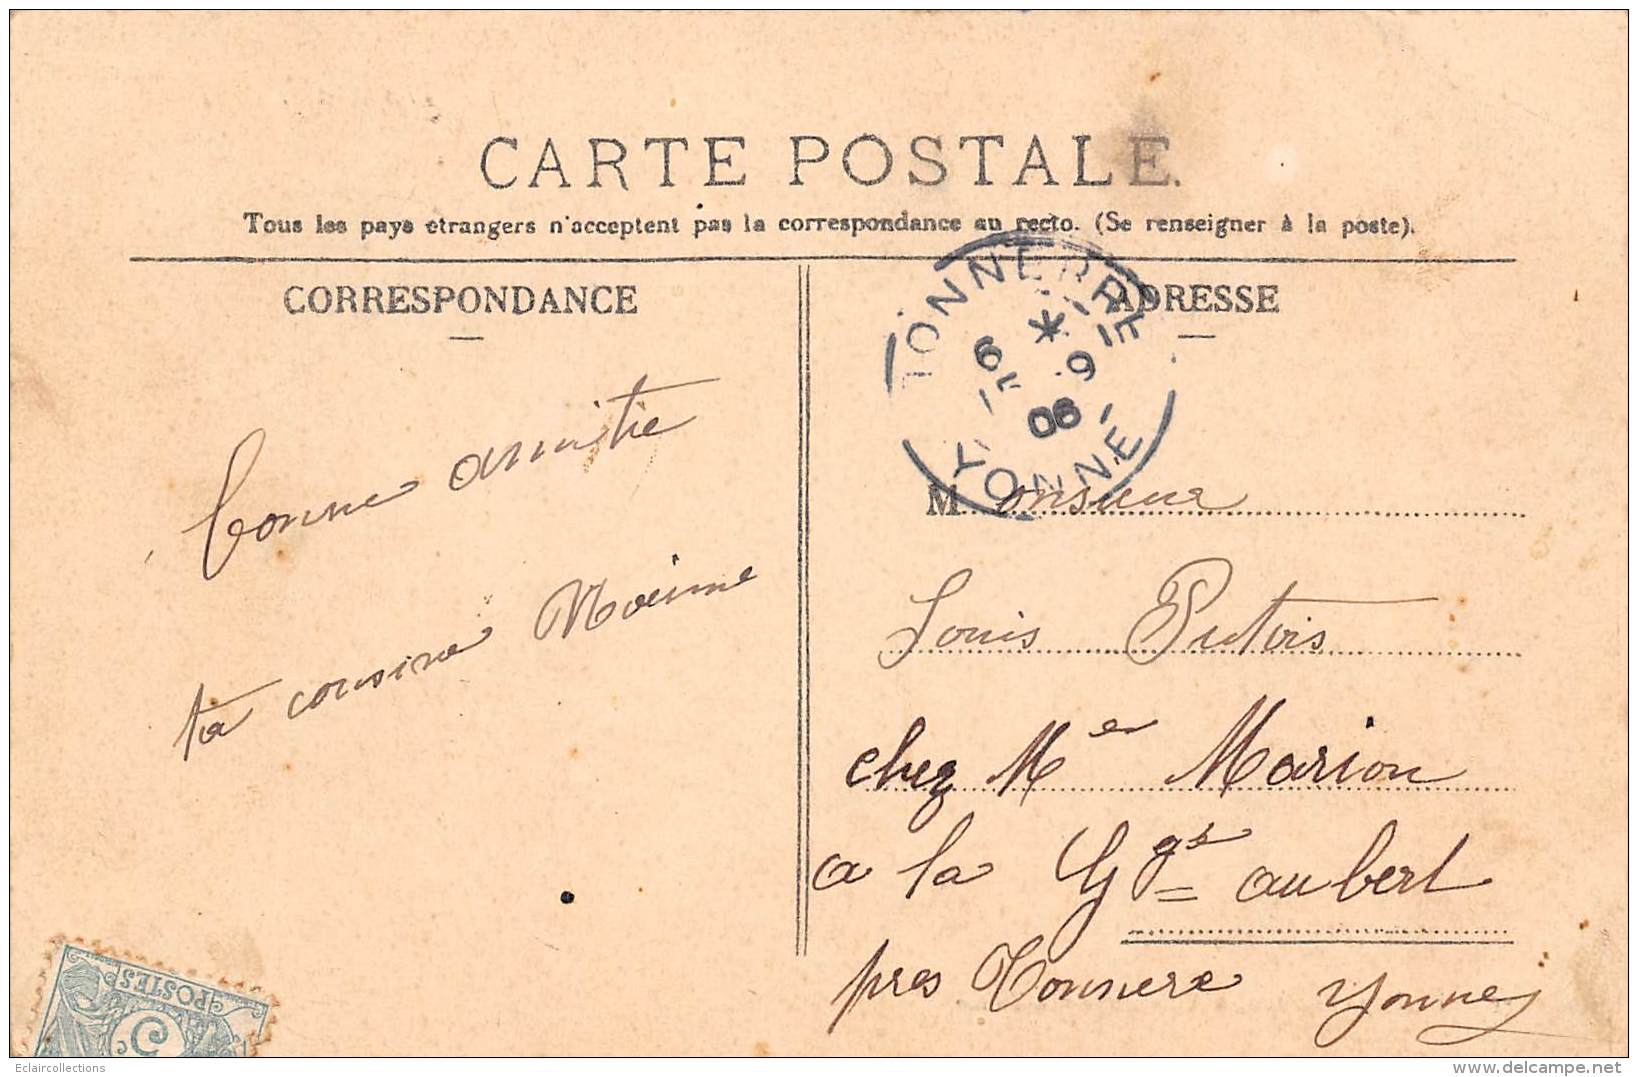 CARTE POSTALE.
Tous les pays etrangers n'acceptent pas la correspondance au recto. (Se renseigner à la poste).
CORRESPONDANCE
bonne amitie
ta cousine
ADRESSE
TONNERRE
6 * 9
06
YONNE
Monsieur
Louis Putois
chez Mer Marion
a la Ggs aubert
pres Tonnere Yonne
POSTES
5c
Eclaircollections
www.delcampe.net